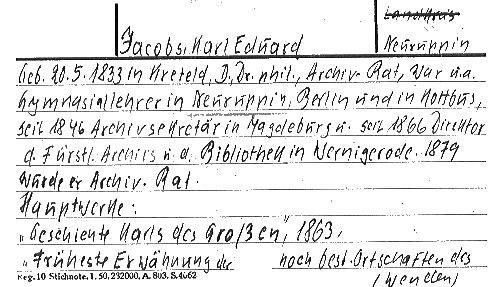 Landkreis
Jacobs, Karl Eduard
Neuruppin
Geb. 20.5.1833 in Krefeld, D, Dr. phil., Archiv-Rat, war u.a.
Gymnasiallehrer in Neuruppin, Berlin und in Kottbus,
seit 1846 Archivsekretär in Magdeburg u. seit 1866 Direktor
d. Fürstl. Archivs u. d. Bibliothek in Wernigerode. 1879
wurde er Archiv-Rat.
Hauptwerke:
„Geschichte Karls des Großen", 1863,
„Früheste Erwähnung der noch best. Ortschaften des
(wenden)
Reg. 10 Stichnote. I. 50, 232000, A. 803. S. 4062